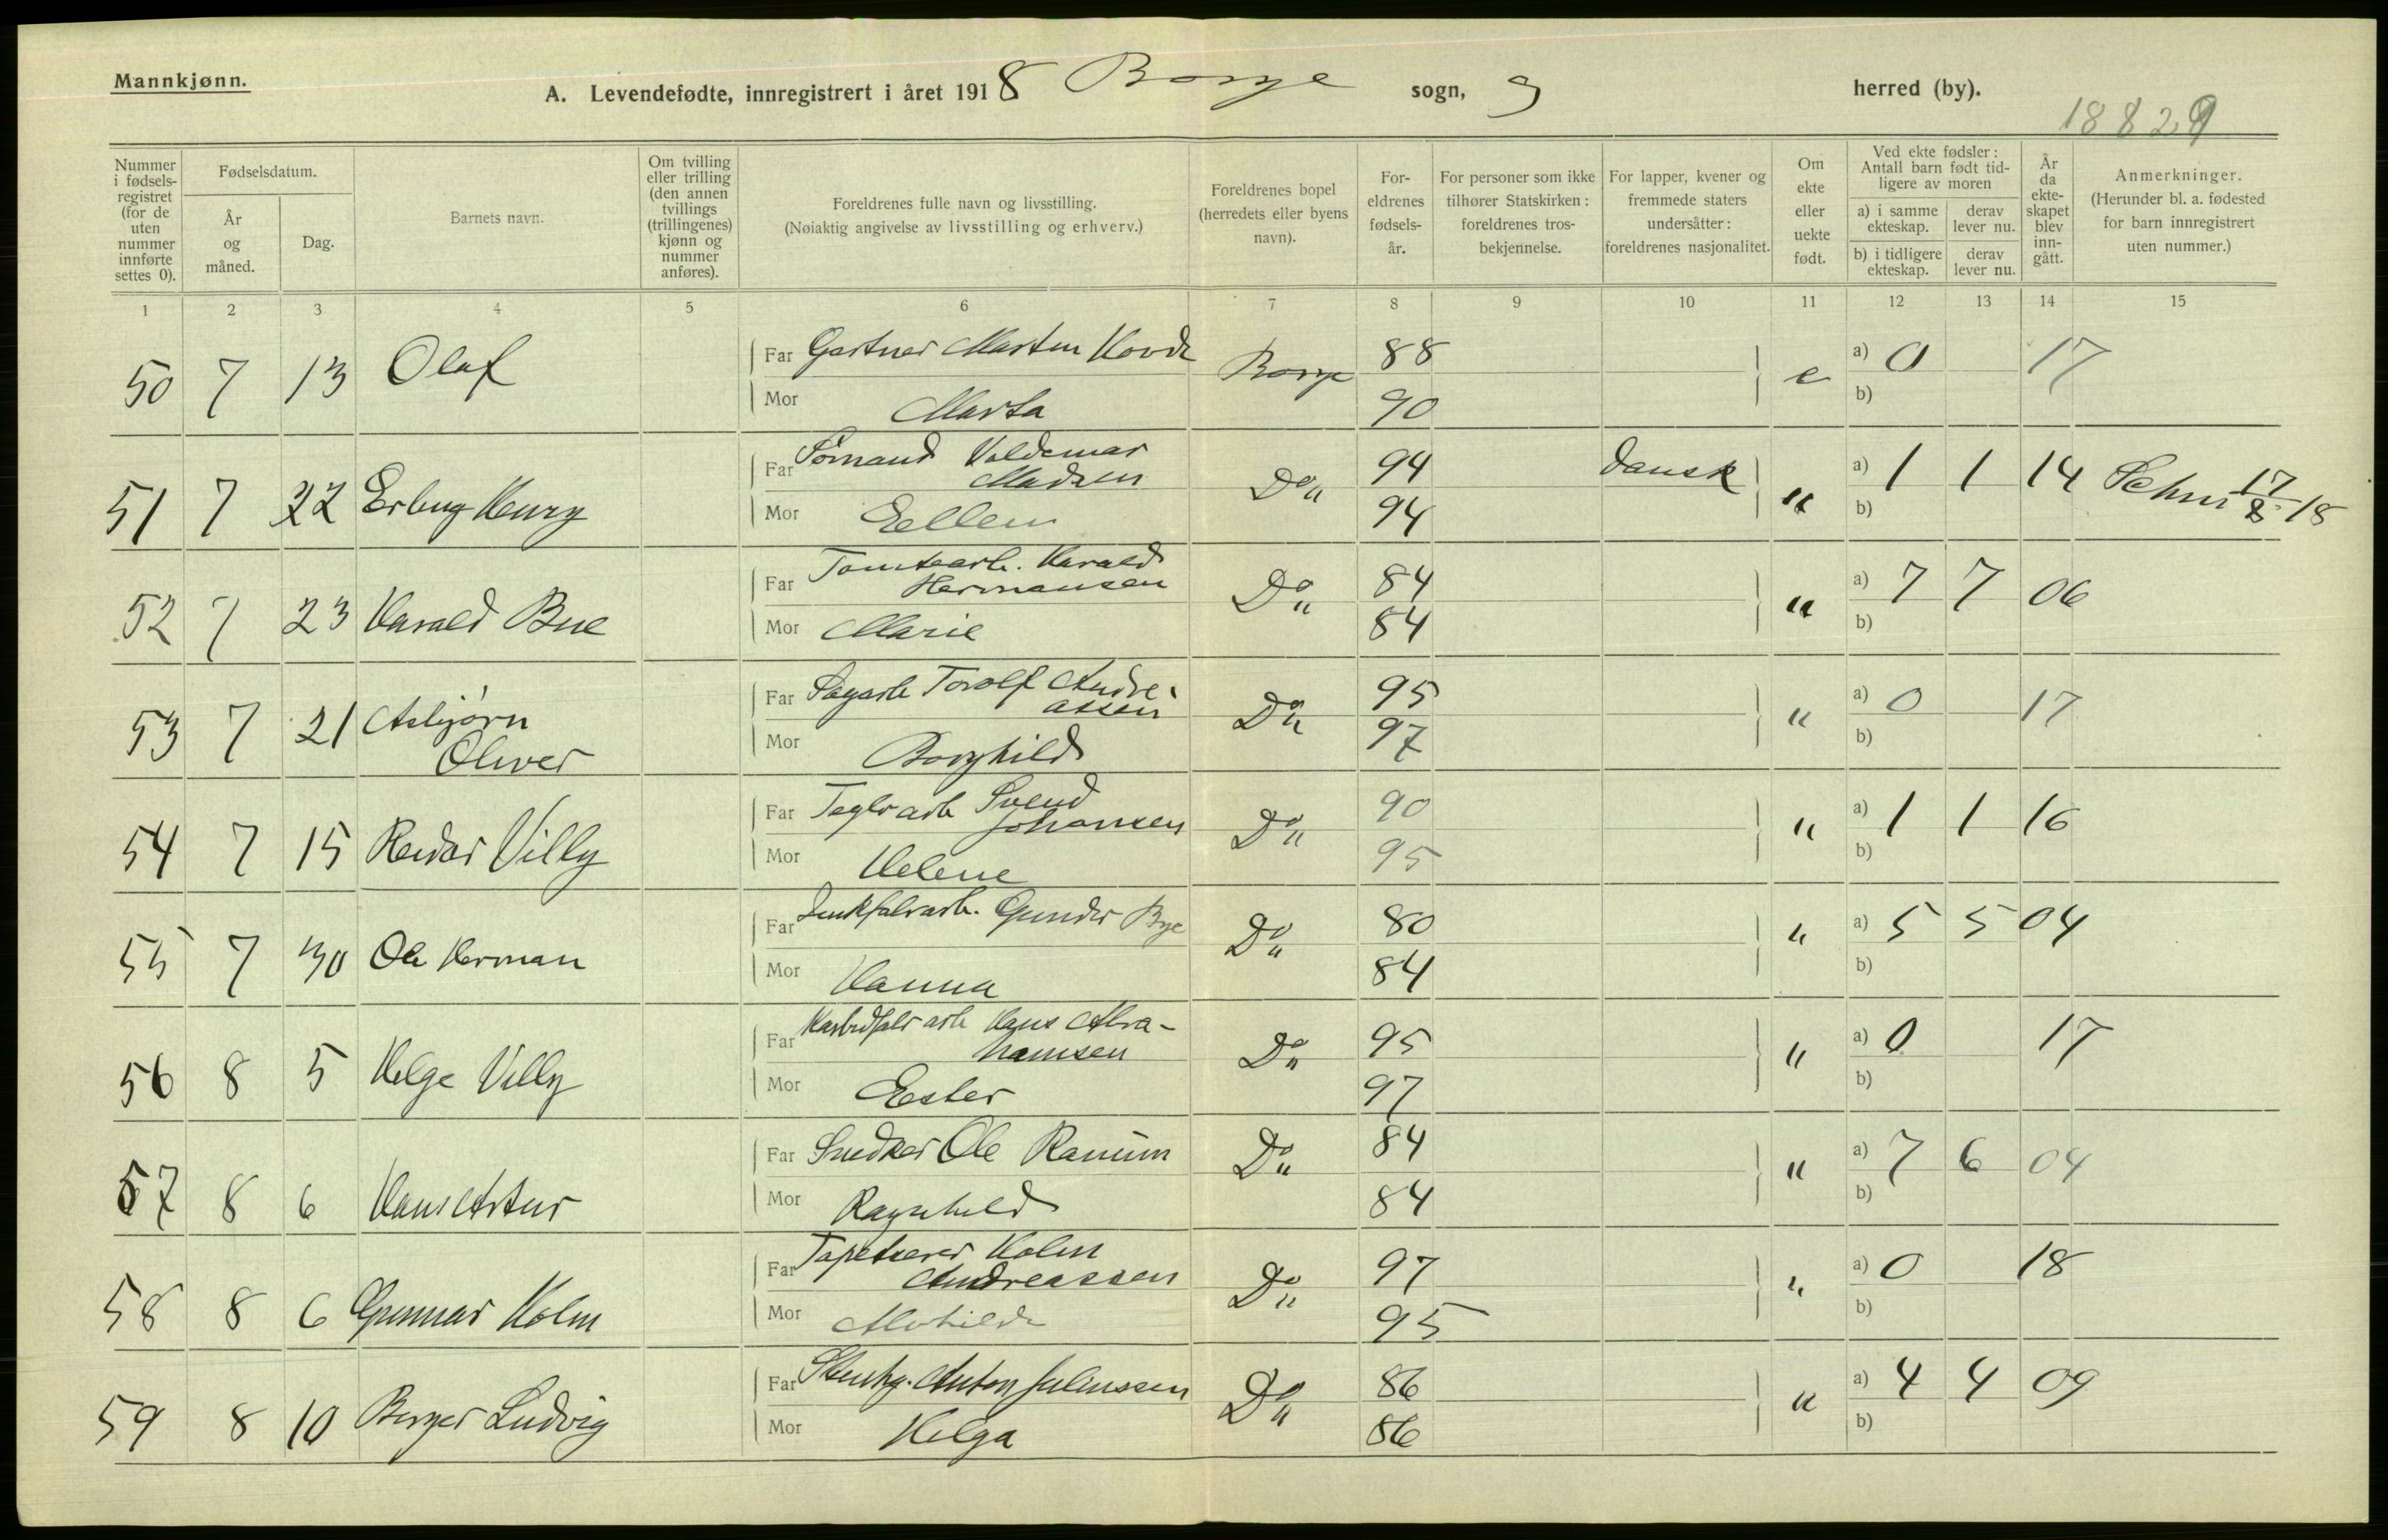 Mannkjønn.
A. Levendefødte, innregistrert i året 1918 Borge sogn, herred (by).
18829
Nummer i fødsels-registret (for de uten nummer innførte settes 0).
Fødselsdatum.
År og måned.
Dag.
Barnets navn.
Om tvilling eller trilling (den annen tvillings (trillingenes) kjønn og nummer anføres).
Foreldrenes fulle navn og livsstilling.
(Nøiaktig angivelse av livsstilling og erhverv.)
Foreldrenes bopel (herredets eller byens navn).
For-eldrenes fødsels-år.
For personer som ikke tilhører Statskirken: foreldrenes tros-bekjennelse.
For lapper, kvener og fremmede staters undersåtter: foreldrenes nasjonalitet.
Om ekte eller uekte født.
Ved ekte fødsler: Antall barn født tid-ligere av moren
a) i samme ekteskap. derav lever nu.
b) i tidligere ekteskap. derav lever nu.
År da ekte-skapet blev inn-gått.
Anmerkninger. (Herunder bl. a. fødested for barn innregistrert uten nummer.)
1 2 3 4 5 6 7 8 9 10 11 12 13 14 15
50 7 13 Olaf Far Gartner Marten Hovde Borge 88 e a) 0 17
Mor Marta 90 b)
51 7 22 Erling Henry Far Sømand Valdemar Madsen Do " 94 Dansk " a) 1 1 14 17/8 18
Mor Eellen 94 b)
52 7 23 Harald Bue Far Tomtearb. Harald Hermansen Do " 84 " a) 7 7 06
Mor Marie 84 b)
53 7 21 Asbjørn Oliver Far Sagarb Torolf Andreassen Do " 95 " a) 0 17
Mor Borghild 97 b)
54 7 15 Reidar Villy Far Teglv arb Svend Johansen Do " 90 " a) 1 1 16
Mor Helene 95 b)
55 7 30 Ole Herman Far Zinkfabrarb. Gunder Bye Do " 80 " a) 5 5 04
Mor Hanna 84 b)
56 8 5 Helge Villy Far Karbidfabr arb Hans Abra-hamsen Do " 95 " a) 0 17
Mor Ester 97 b)
57 8 6 Hans Artur Far Snedker Ole Ranum Do " 84 " a) 7 6 04
Mor Ragnhild 84 b)
58 8 6 Gunnar Holm Far Tapetserer Holm Andreassen Do " 97 " a) 0 18
Mor Mathilde 95 b)
59 8 10 Birger Ludvig Far Stenhg. Anton Juliussen Do " 86 " a) 4 4 09
Mor Helga 86 b)